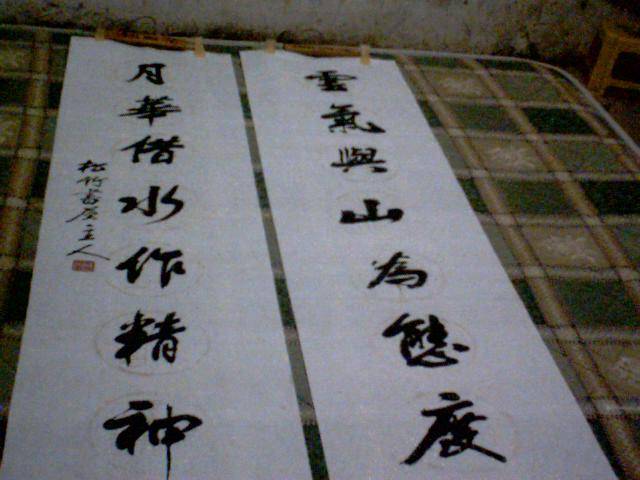 雲氣與山為態度
月華借水作精神
松竹書屋主人